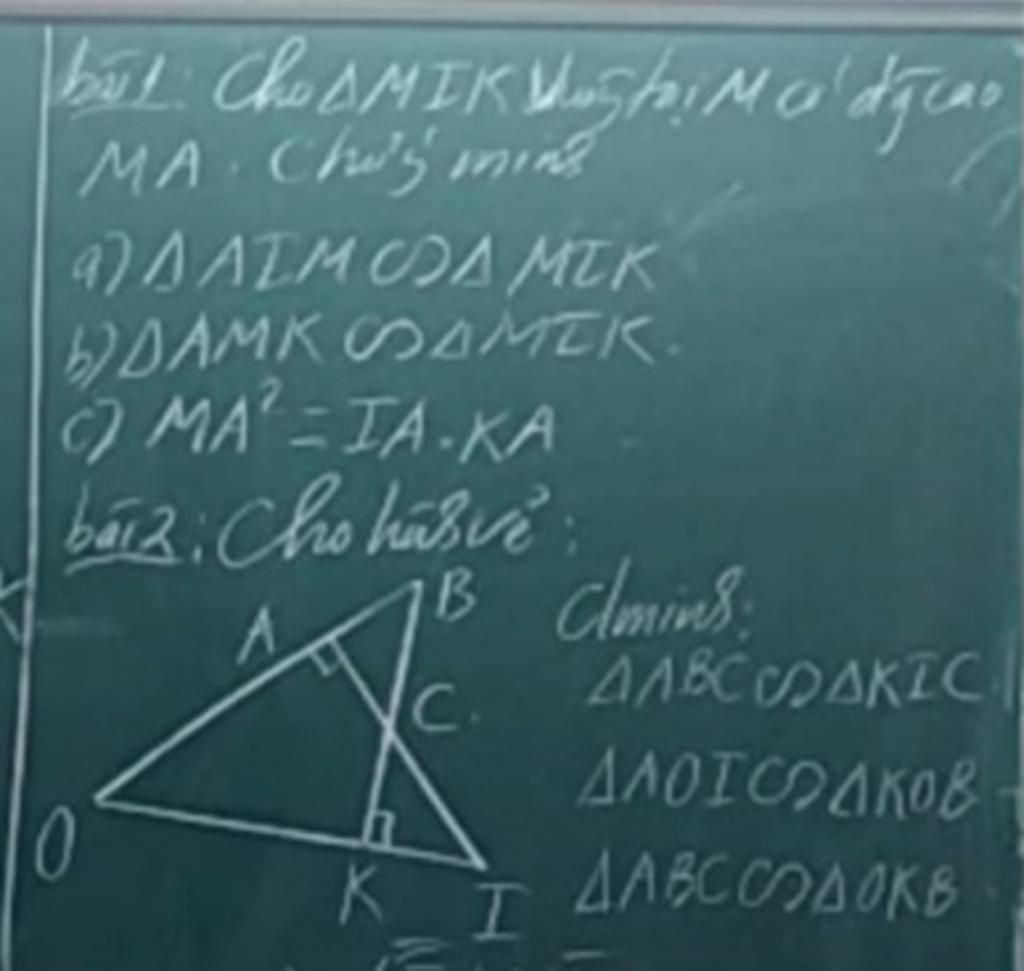 bài 1: Cho ΔMIK vuông tại M có đg cao
MA. Chứng minh
a) ΔAIM ∽ Δ MIK
b) ΔAMK ∽ ΔMIK.
c) MA² = IA.KA
bài 2: Cho hình vẽ:
A
B
C
O
K
I
Cminh:
ΔABC ∽ ΔKIC
ΔAOI ∽ ΔKOB
ΔABC ∽ ΔOKB